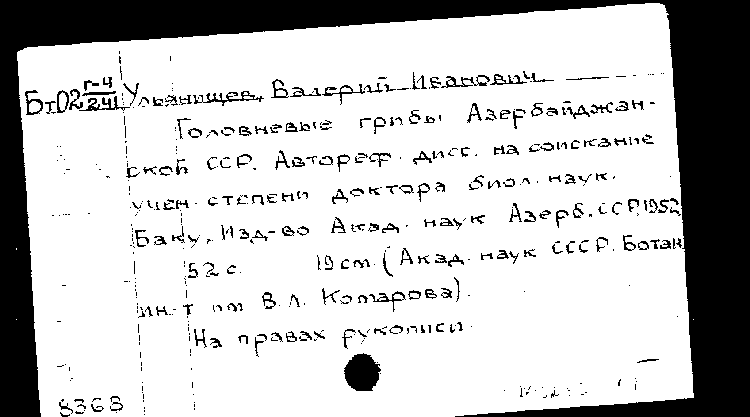 Бт02 г-4/241 Ульянищев, Валерий Иванович.
Головневые грибы Азербайджан-
ской ССР. Автореф. дисс. на соискание
учен. степени доктора биол. наук.
Баку, Изд-во Акад. наук Азерб. ССР, 1952
52 с. 19 см. (Акад. наук СССР. Ботан.
ин-т им В. Л. Комарова).
На правах рукописи.
8368